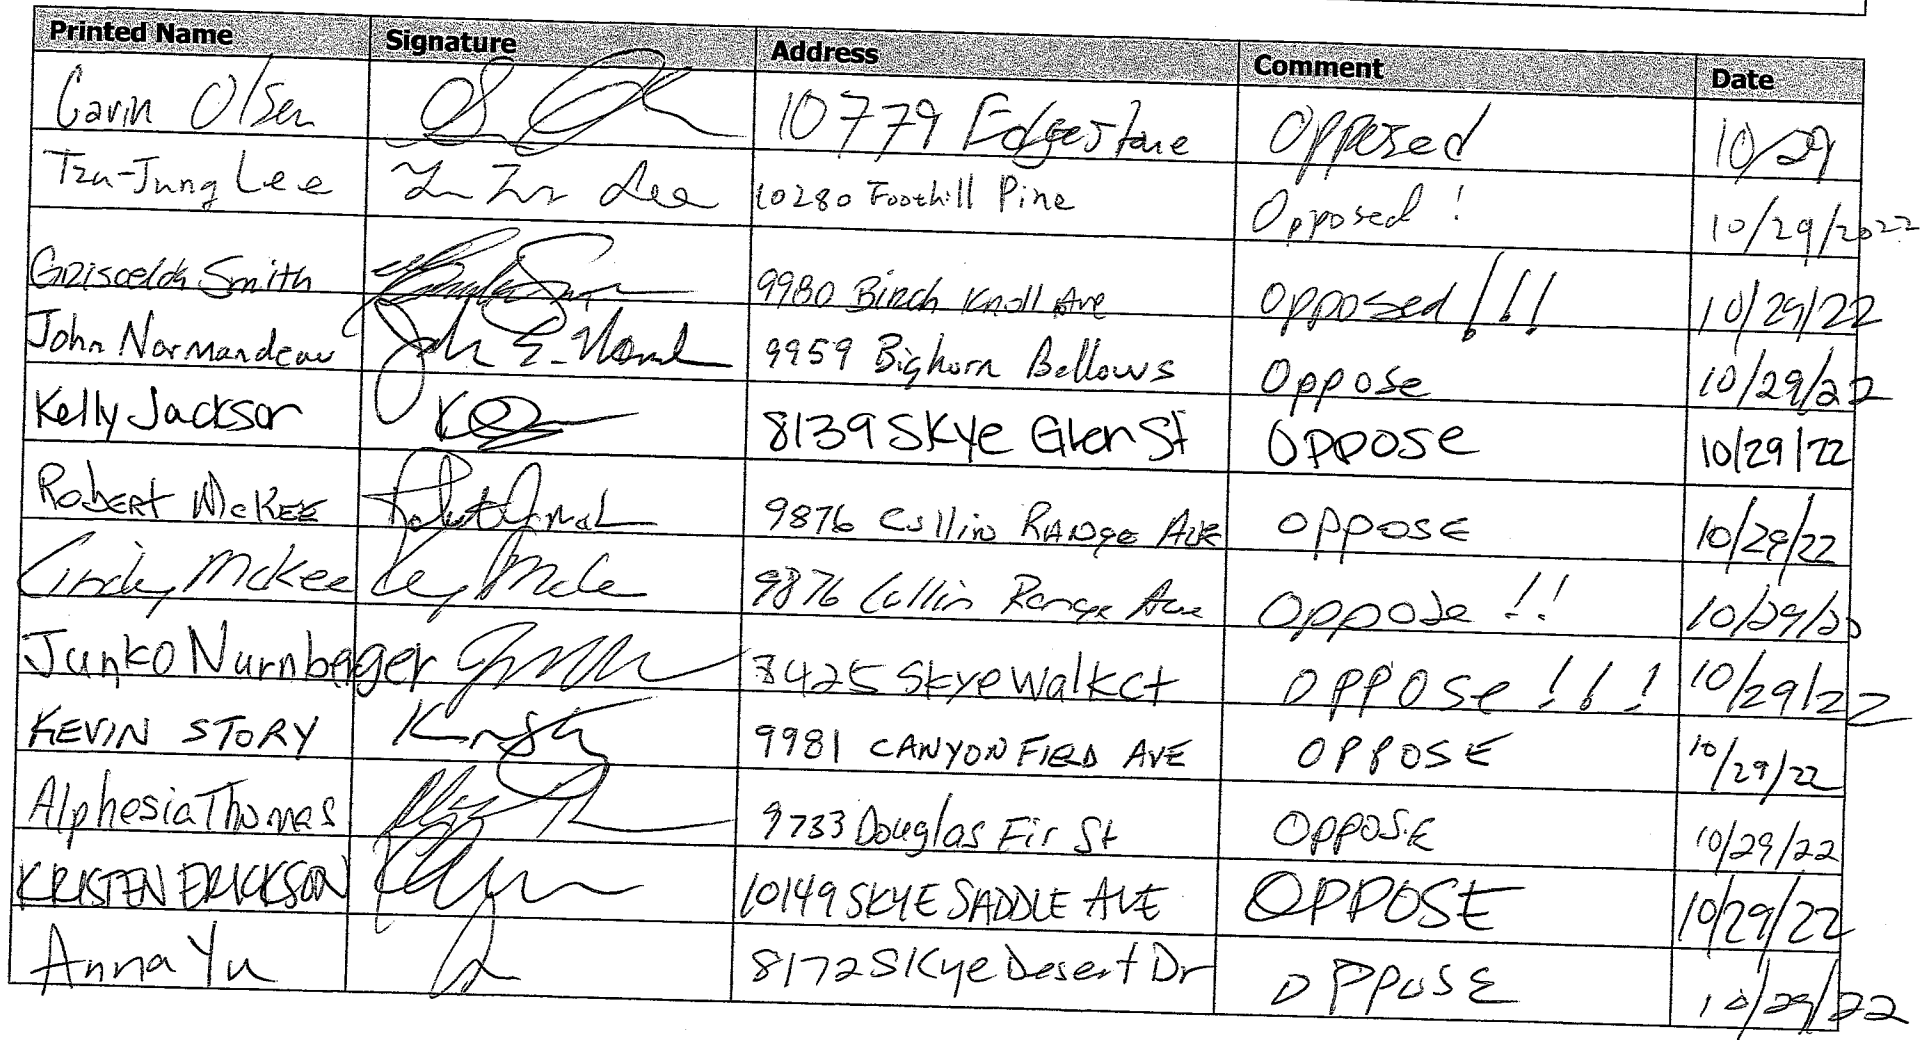 Printed Name Signature Address Comment Date
Gavin Olsen 10779 Edgestone Opposed 10/29
Tzu-Jung Lee 10280 Foothill Pine Opposed! 10/29/2022
Griscelda Smith 9980 Birch Knoll Ave Opposed!!! 10/29/22
John Normandeau John E. 9959 Bighorn Bellows Oppose 10/29/22
Kelly Jackson 8139 Skye Glen St Oppose 10/29/22
Robert McKee 9876 Collin Range Ave Oppose 10/29/22
Cindy McKee 9876 Collin Range Ave Oppose!! 10/29/22
Junko Nurnberger 8425 Skye Walk Ct Oppose!!! 10/29/22
KEVIN STORY 9981 CANYON FIELD AVE OPPOSE 10/29/22
Alphesia Thomas 9733 Douglas Fir St OPPOSE 10/29/22
KRISTEN ERICKSON 10149 SKYE SADDLE AVE OPPOSE 10/29/22
Anna Yu 8172 Skye Desert Dr OPPOSE 10/29/22